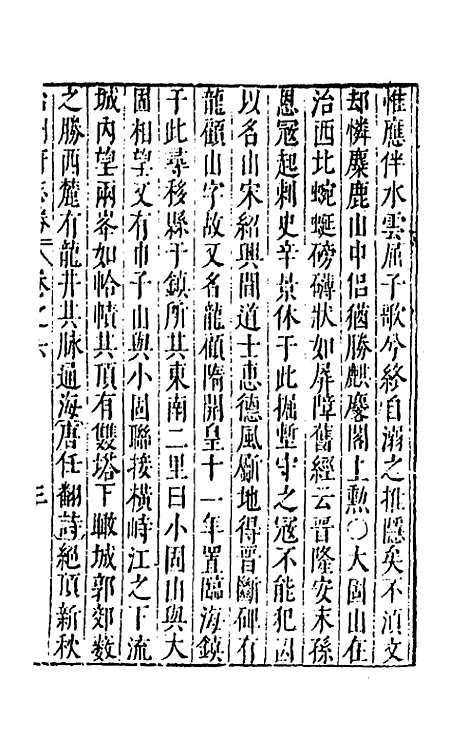 惟應伴水雲屈子歌兮終自溺之推隱矣不湏文
却憐麋鹿山中侶猶勝麒麐閣上勲〇大固山在
治西北蜿蜒磅礴狀如屏障舊經云晉隆安末孫
恩冦起刺史辛景休于此掘塹守之冦不能犯固
以名山宋紹興間道士惠德風斸地得晋斷碑有
龍顧山字故又名龍顧隋開皇十一年置臨海鎮
于此尋移縣于鎮所其東南二里曰小固山與大
固相望又有巾子山與小固聯接橫峙江之下流
城內望兩峯如帢幘其頂有雙塔下瞰城郭郊數
之勝西麓有龍井其脉通海唐任翻詩絕頂新秋
台州府志卷二 卷之六 三